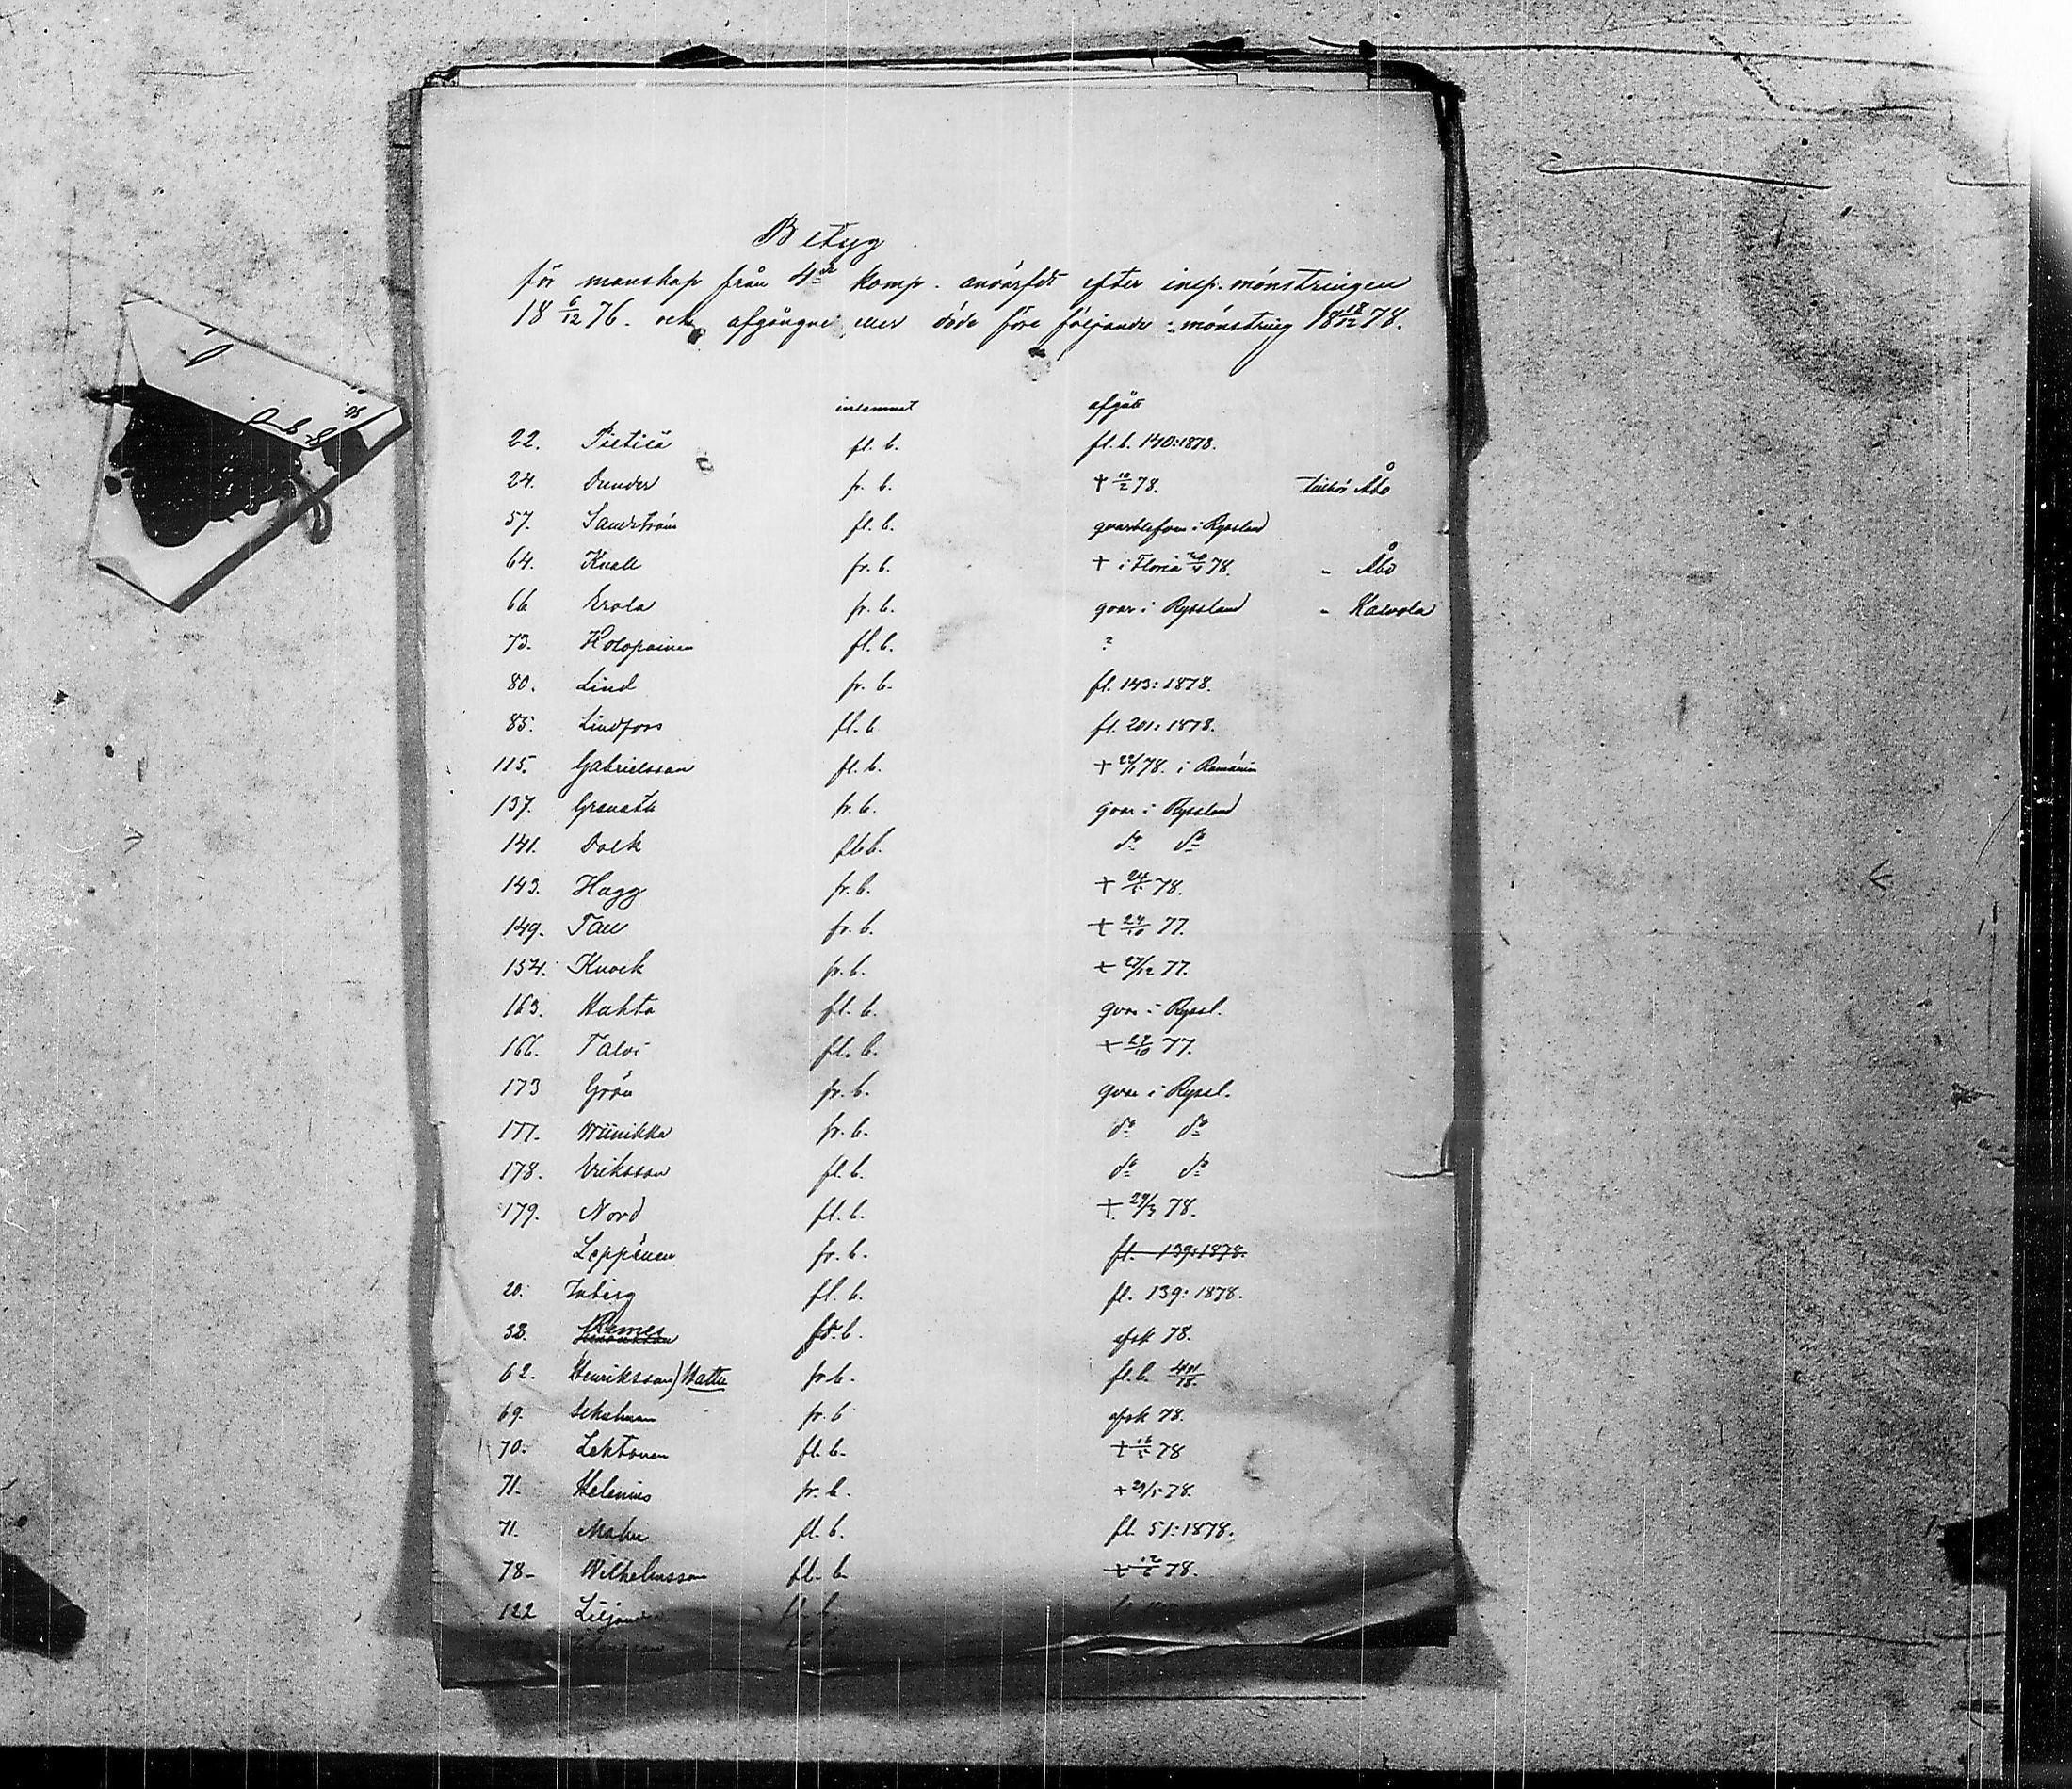 Betyg
för manskap från 4de komp. anvärfdt efter insp. mönstringen
18 6/12 76. och afgångne eller döde före följande mönstring 18 18/12 78.
inkommit afgått
22. Pietilä fl. b. fl. b. 140:1878.
24. Dunder fr. b. + 10/2 78. tillhör Åbo
57. Sandström fl. b. qvarblefven i Ryssland
64. Knall fr. b. + i Floria 20/4 78. " Åbo
66 Erola fr. b. qvar i Ryssland " Kalvola
73. Holopainen fl. b. ?
80. Lind fr. b. fl. 143:1878.
85. Lindfors fl. b fl. 201:1878.
115. Gabrielsson fl. b. + 22/1 78. i Rumänien
137. Granath fr. b. qvar i Ryssland
141. Dolk fl. b. do do
143. Hagg fr. b. + 24/5 78.
149. Tall fr. b. + 24/10 77.
154. Knock fr. b. + 27/12 77.
163. Huhta fl. b. qvar i Ryssl.
166. Talvi fl. b. + 29/10 77.
173 Grön fr. b. qvar i Ryssl.
177. Wiinikka fr. b. do do
178. Eriksson fl. b. do do
179. Nord fl. b. + 29/3 78.
Leppänen fr. b. fl. 139:1878.
20. Inberg fl. b. fl. 139:1878.
38. Rames fr. b. afsk 78.
62. Henriksson) Wattu fr b. fl. b.
69. Schulman fr. b afsk 78.
70. Lehtonen fl. b. + 16/5 78
71. Helenius fr. b. + 29/5 78.
71. Malm fl. b. fl. 51:1878.
78. Wilhelmsson fl. b. + 12/6 78.
122 Liljander fl. b.